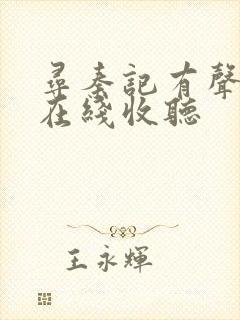 尋秦記有聲
在綫收聽
王永輝